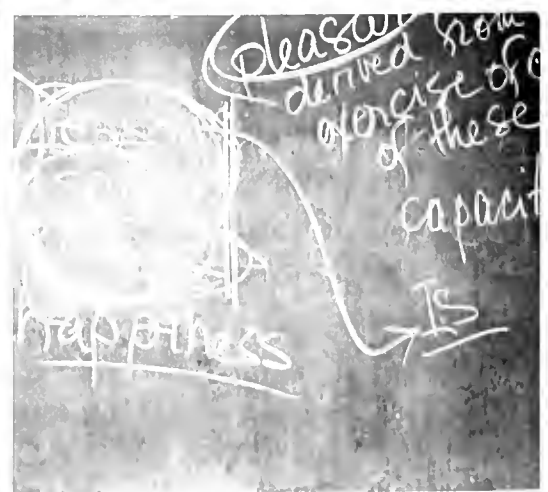 pleasur
derived from
exercise of o
of these
capacit
Is
Happiness